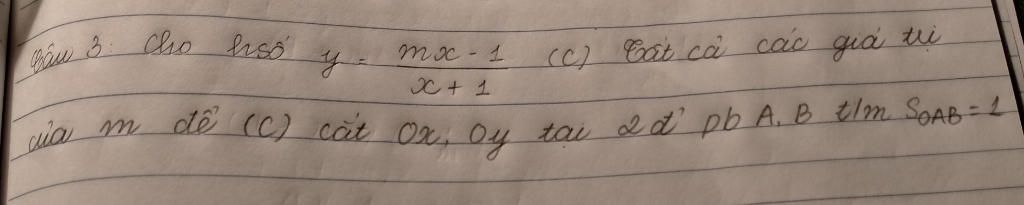 Câu 3: Cho hsố y = \frac{mx - 1}{x + 1} (C) Tất cả các giá trị
của m để (C) cắt Ox, Oy tại 2 đ' pb A, B t/m S_{OAB} = 1